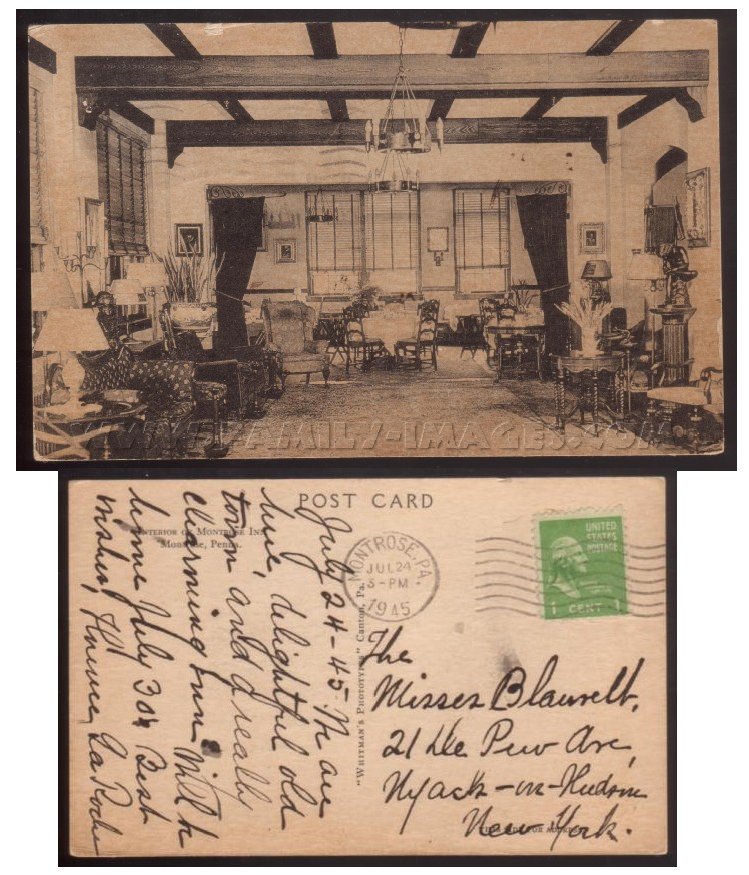 WWW.FAMILY-IMAGES.COM
POST CARD
INTERIOR OF MONTROSE INN
Montrose, Penna.
July 24-45. We are
here, delightful old
town and a really
charming Inn. Will be
home July 30th Best
wishes, Florence LaRoche
"WHITMAN'S PHOTOTYPES" Canton, Pa.
MONTROSE, PA.
JUL 24
3-PM
1945
UNITED
STATES
POSTAGE
1 CENT 1
The
Misses Blauvelt,
21 De Pew Ave,
Nyack-on-Hudson
New York.
THIS SIDE FOR ADDRESS